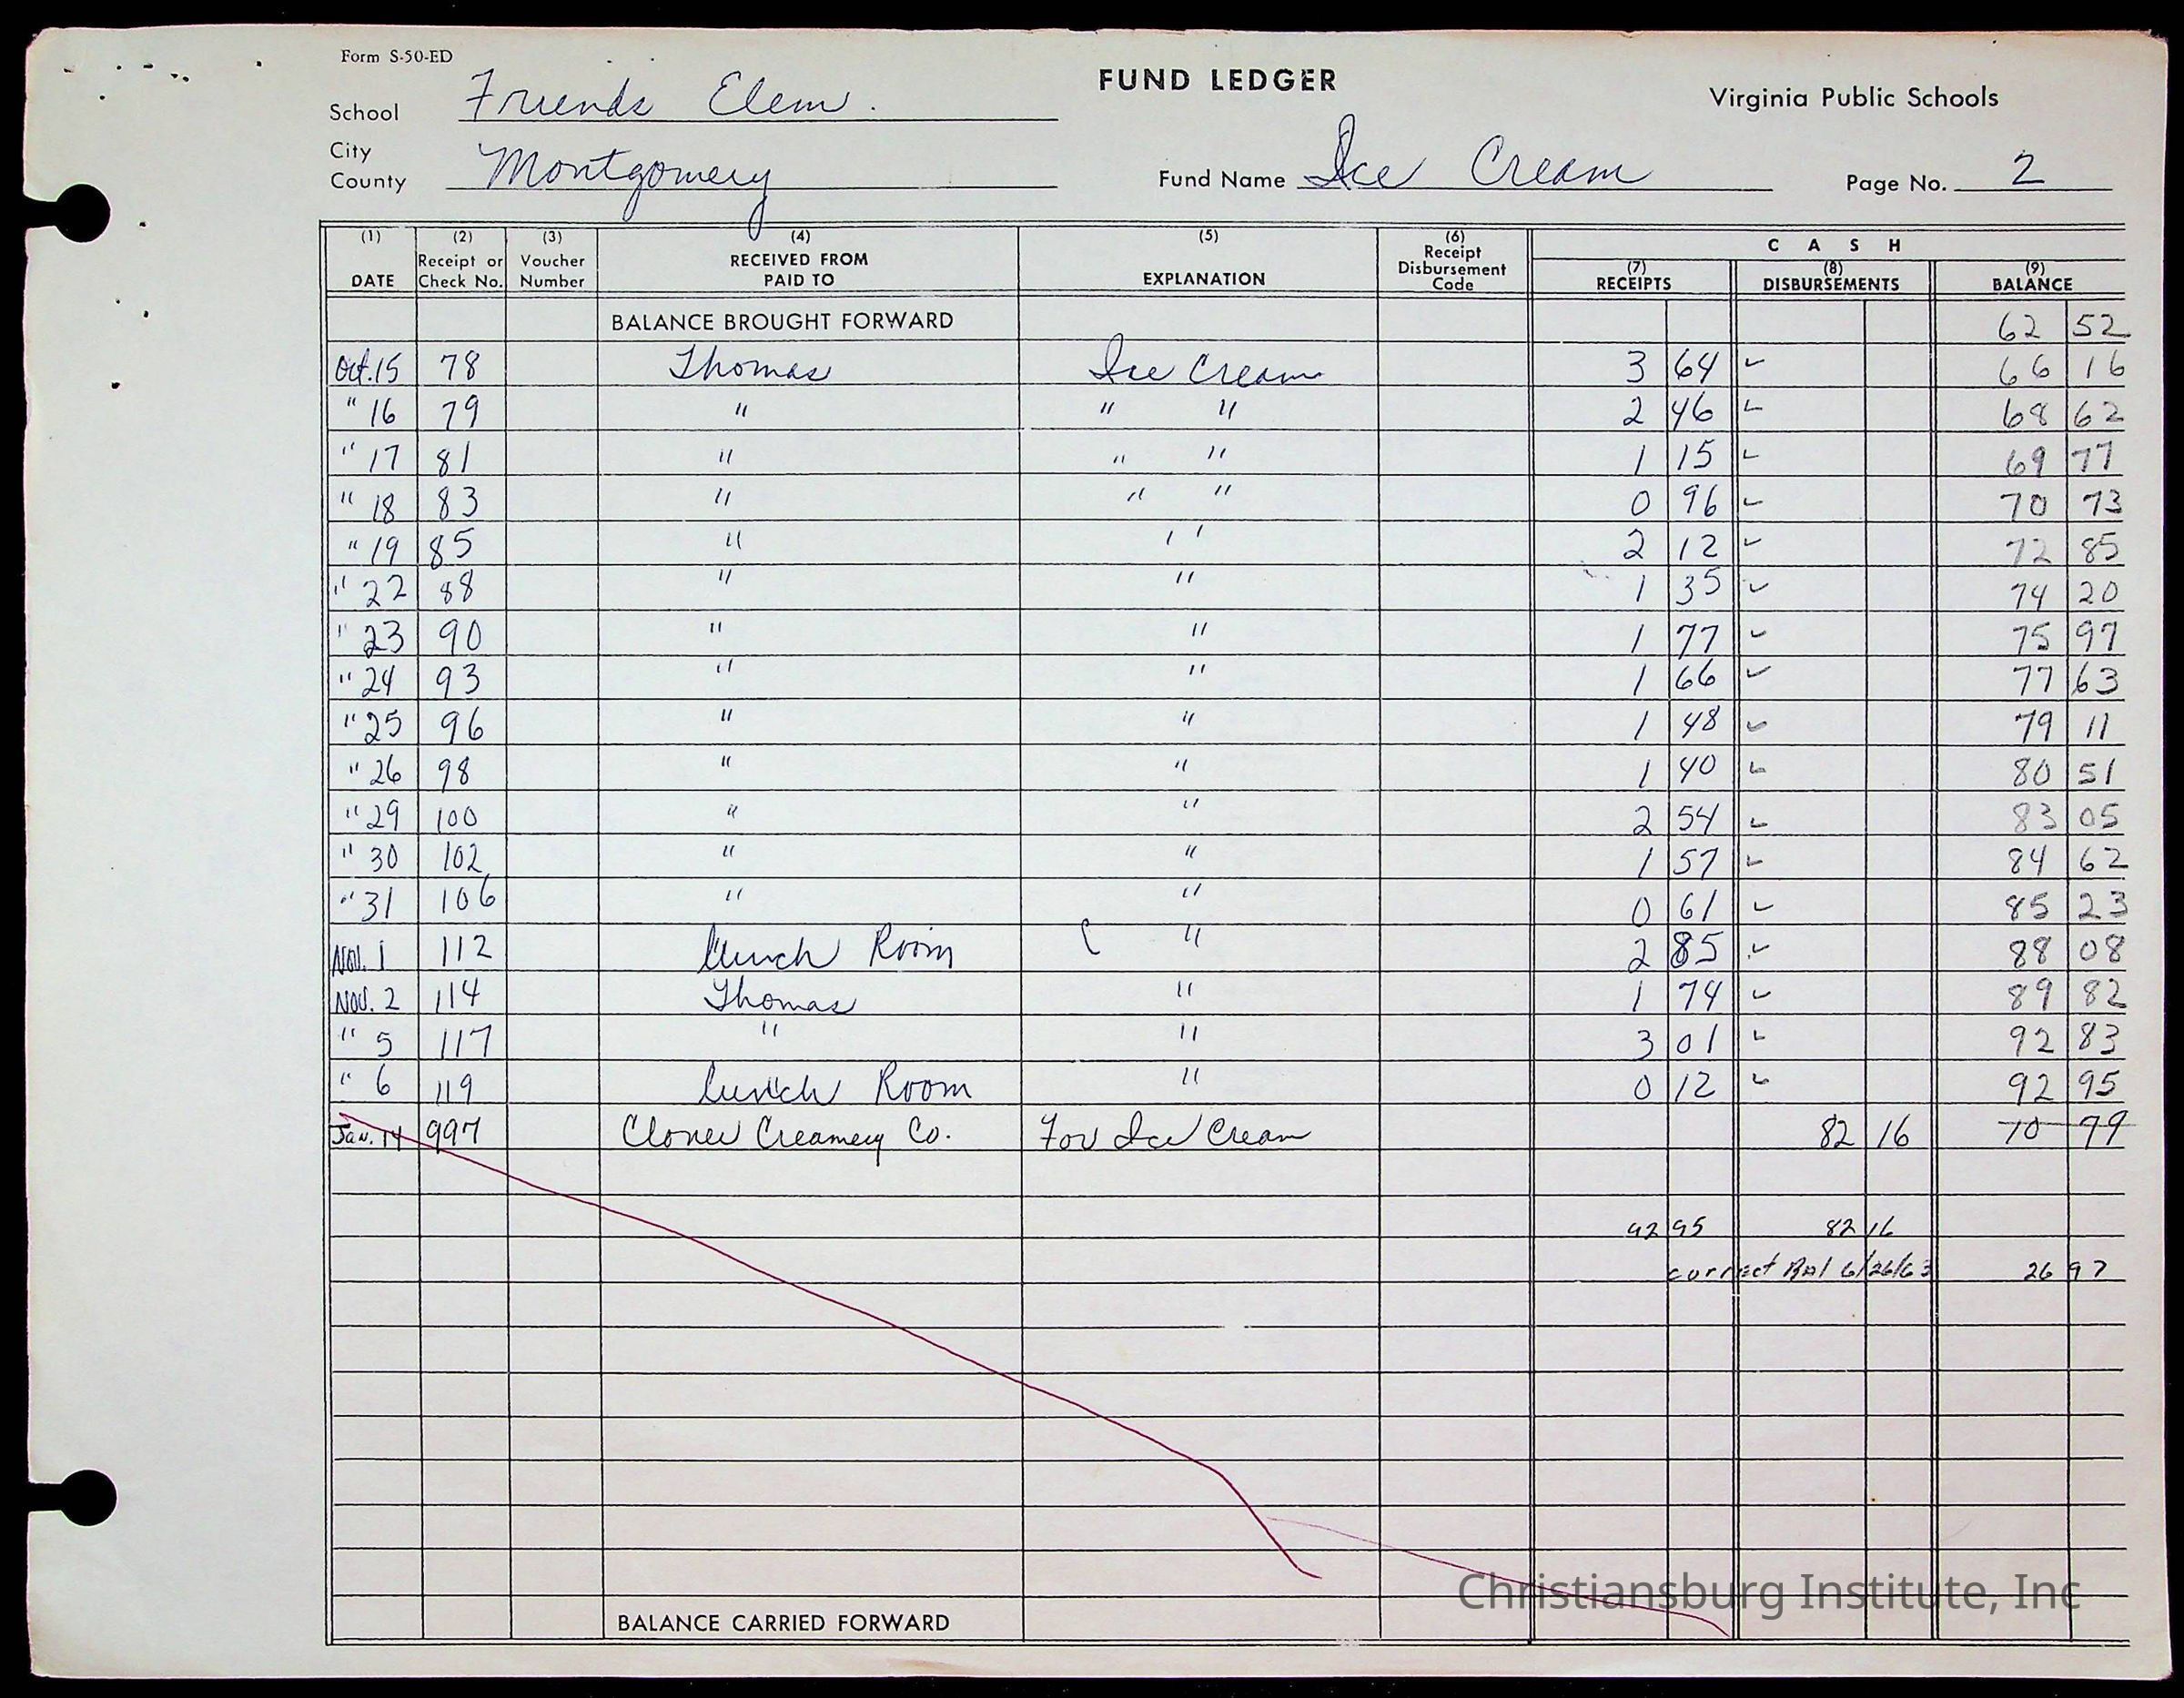 Form S-50-ED
FUND LEDGER
Virginia Public Schools
School Friends Elem.
City
County Montgomery
Fund Name Ice Cream
Page No. 2
(1) DATE (2) Receipt or Check No. (3) Voucher Number (4) RECEIVED FROM PAID TO (5) EXPLANATION (6) Receipt Disbursement Code CASH (7) RECEIPTS (8) DISBURSEMENTS (9) BALANCE
BALANCE BROUGHT FORWARD 62 52
Oct. 15 78 Thomas Ice Cream 3 64 ✓ 66 16
" 16 79 " " " 2 46 ✓ 68 62
" 17 81 " " " 1 15 ✓ 69 77
" 18 83 " " " 0 96 ✓ 70 73
" 19 85 " " 2 12 ✓ 72 85
" 22 88 " " 1 35 ✓ 74 20
" 23 90 " " 1 77 ✓ 75 97
" 24 93 " " 1 66 ✓ 77 63
" 25 96 " " 1 48 ✓ 79 11
" 26 98 " " 1 40 ✓ 80 51
" 29 100 " " 2 54 ✓ 83 05
" 30 102 " " 1 57 ✓ 84 62
" 31 106 " " 0 61 ✓ 85 23
Nov. 1 112 Lunch Room ( " 2 85 ✓ 88 08
Nov. 2 114 Thomas " 1 74 ✓ 89 82
" 5 117 " " 3 01 ✓ 92 83
" 6 119 Lunch Room " 0 12 ✓ 92 95
Jan. 14 997 Clover Creamery Co. For Ice Cream 82 16 70 79
92 95 82 16
correct Bal 6/26/63 26 97
BALANCE CARRIED FORWARD
Christiansburg Institute, Inc